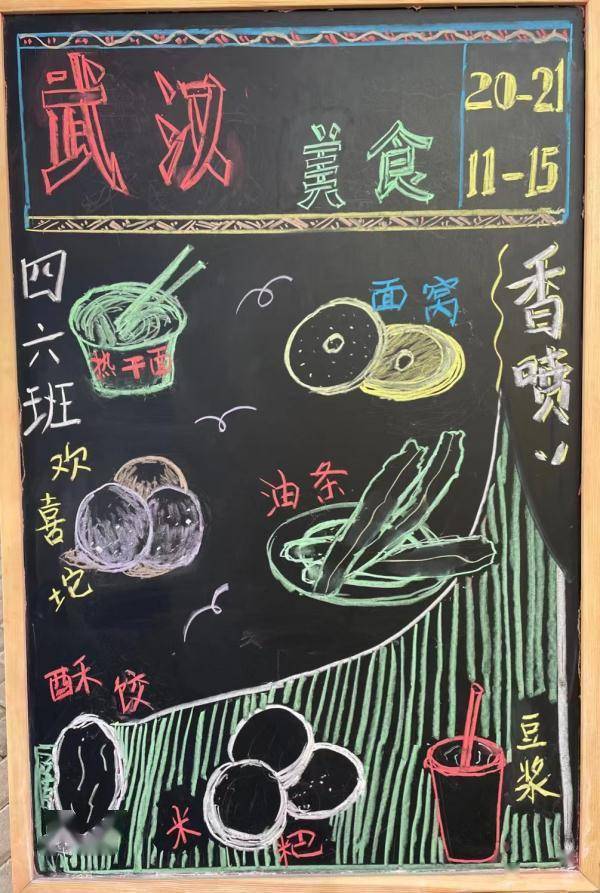 武汉
美食
20-21
11-15
四六班
香喷〻
热干面
面窝
欢喜坨
油条
酥饺
米粑
豆浆